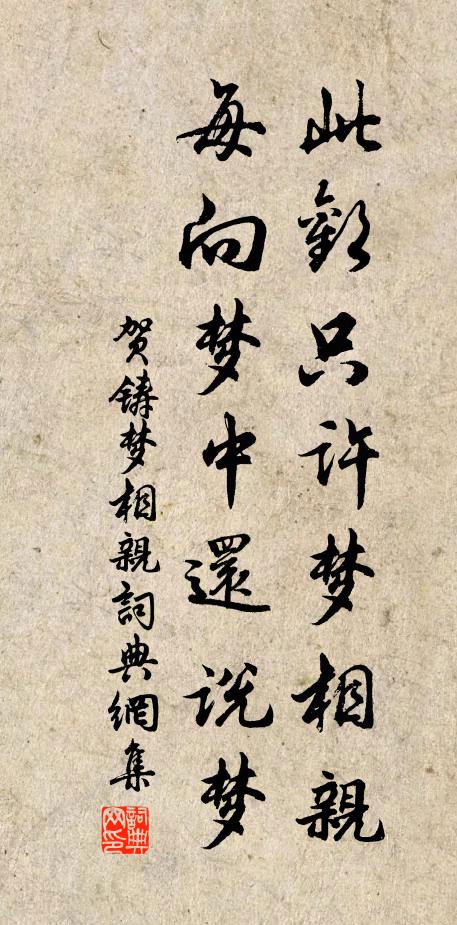 此歡只许梦相親
每向梦中還说梦
贺铸梦相親詞典網集
詞典网印